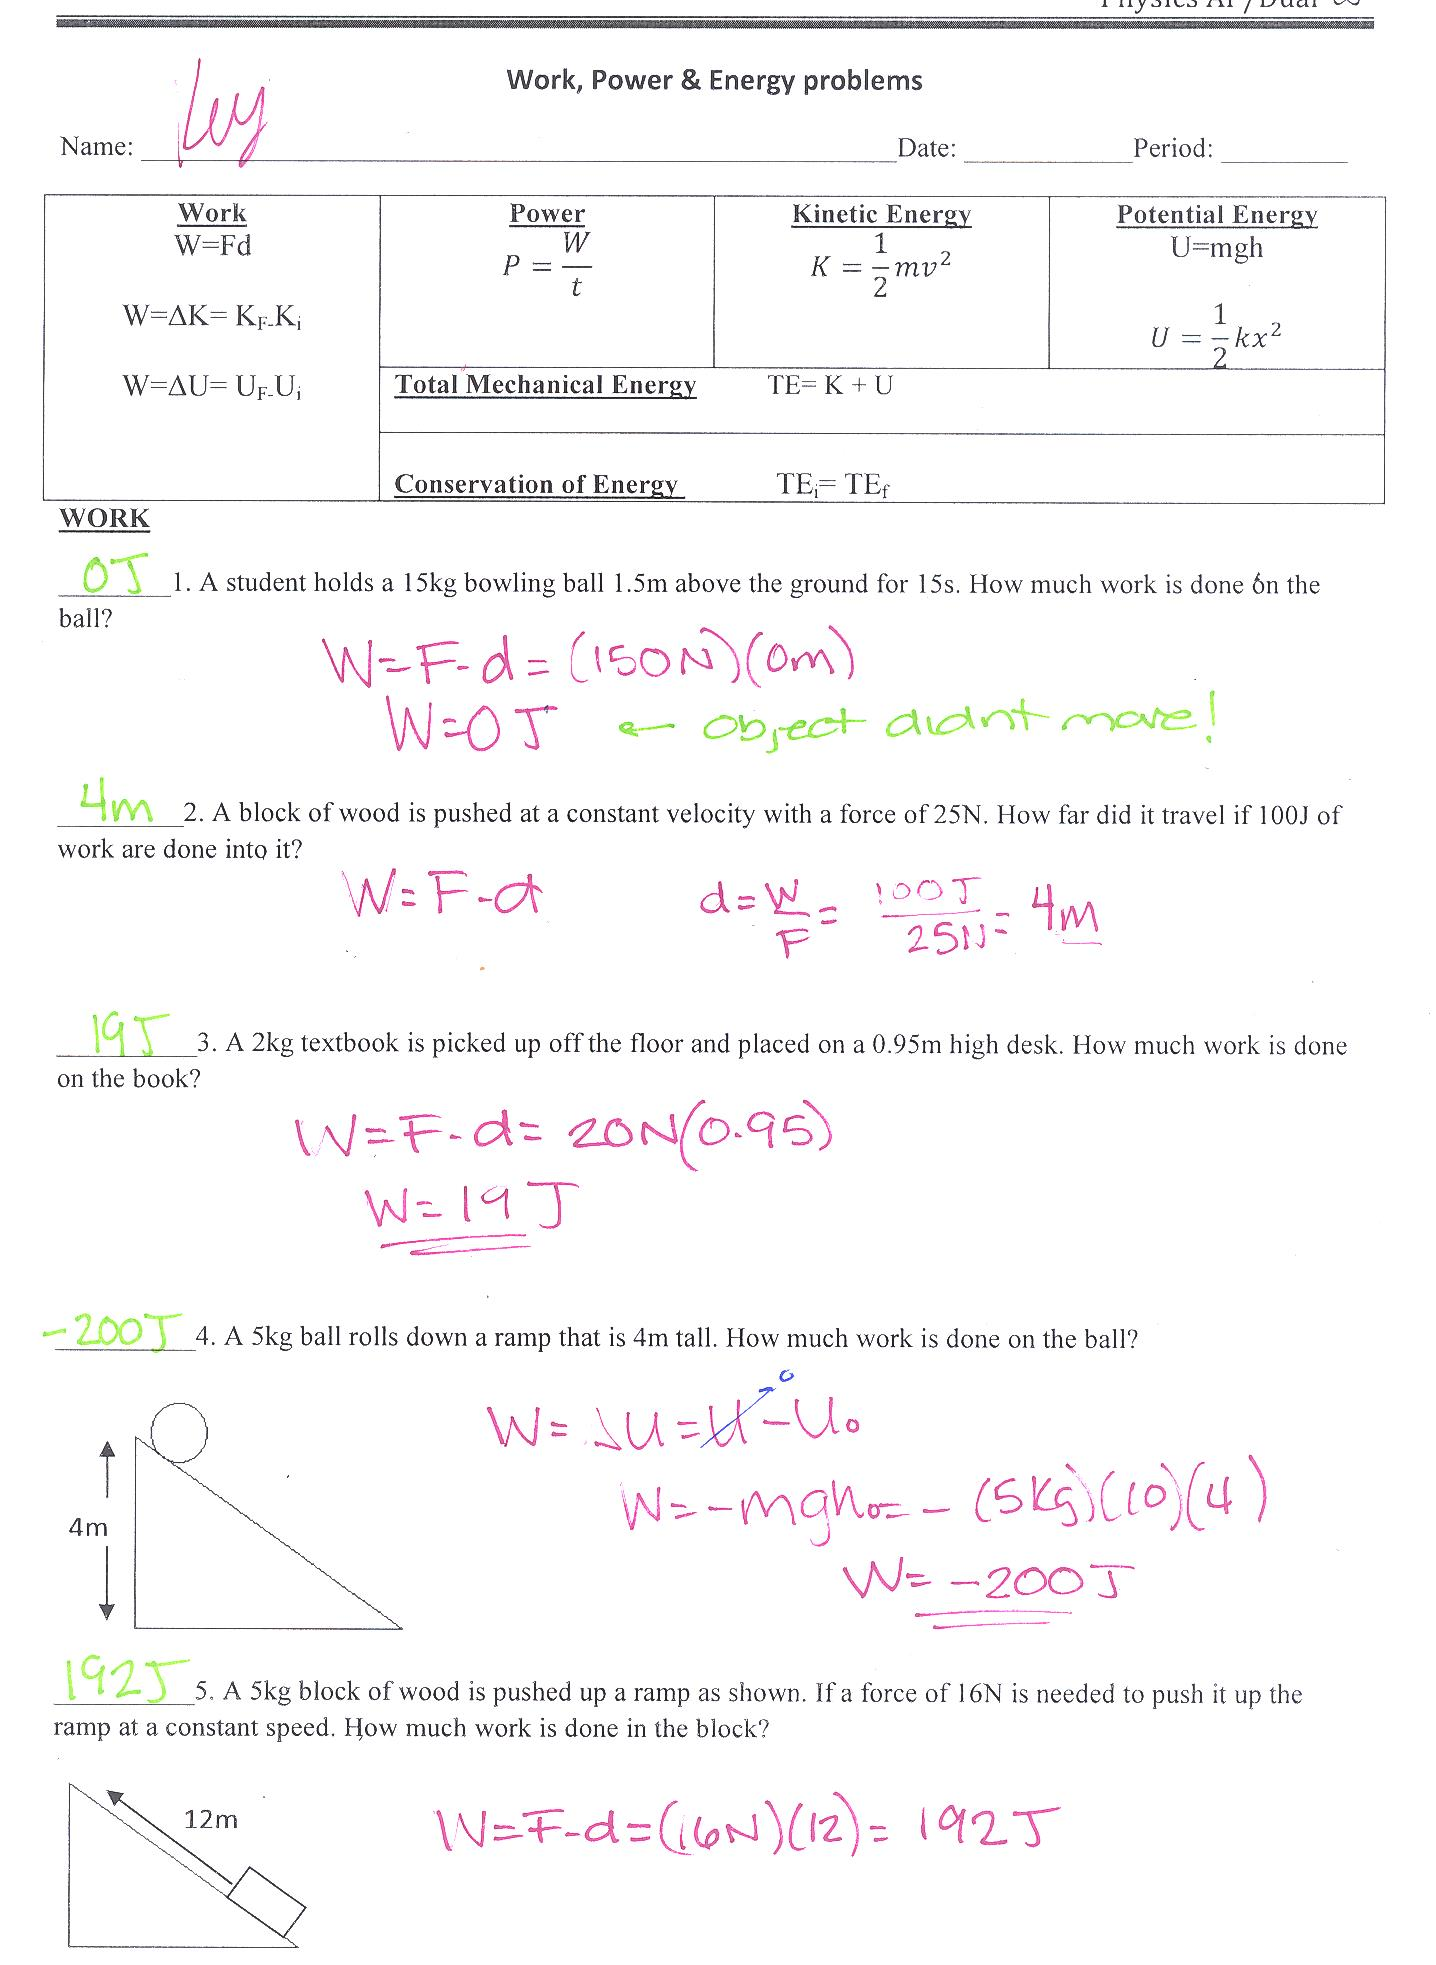 Physics AP/Dual
Work, Power & Energy problems
Name: Key Date: Period:
Work
W=Fd
W=ΔK= K_F-K_i
W=ΔU= U_F-U_i
Power
P = W/t
Kinetic Energy
K = 1/2 mv²
Potential Energy
U=mgh
U = 1/2 kx²
Total Mechanical Energy TE= K + U
Conservation of Energy TE_i= TE_f
WORK
0J 1. A student holds a 15kg bowling ball 1.5m above the ground for 15s. How much work is done on the
ball?
W=F-d=(150N)(0m)
W=0J ← object didnt move!
4m 2. A block of wood is pushed at a constant velocity with a force of 25N. How far did it travel if 100J of
work are done into it?
W=F-d d=W/F= 100J/25N= 4m
19J 3. A 2kg textbook is picked up off the floor and placed on a 0.95m high desk. How much work is done
on the book?
W=F-d= 20N(0.95)
W=19J
-200J 4. A 5kg ball rolls down a ramp that is 4m tall. How much work is done on the ball?
4m
W=ΔU=U-U₀
0
W=-mgh₀=-(5kg)(10)(4)
W=-200J
192J 5. A 5kg block of wood is pushed up a ramp as shown. If a force of 16N is needed to push it up the
ramp at a constant speed. How much work is done in the block?
12m
W=F-d=(16N)(12)= 192J